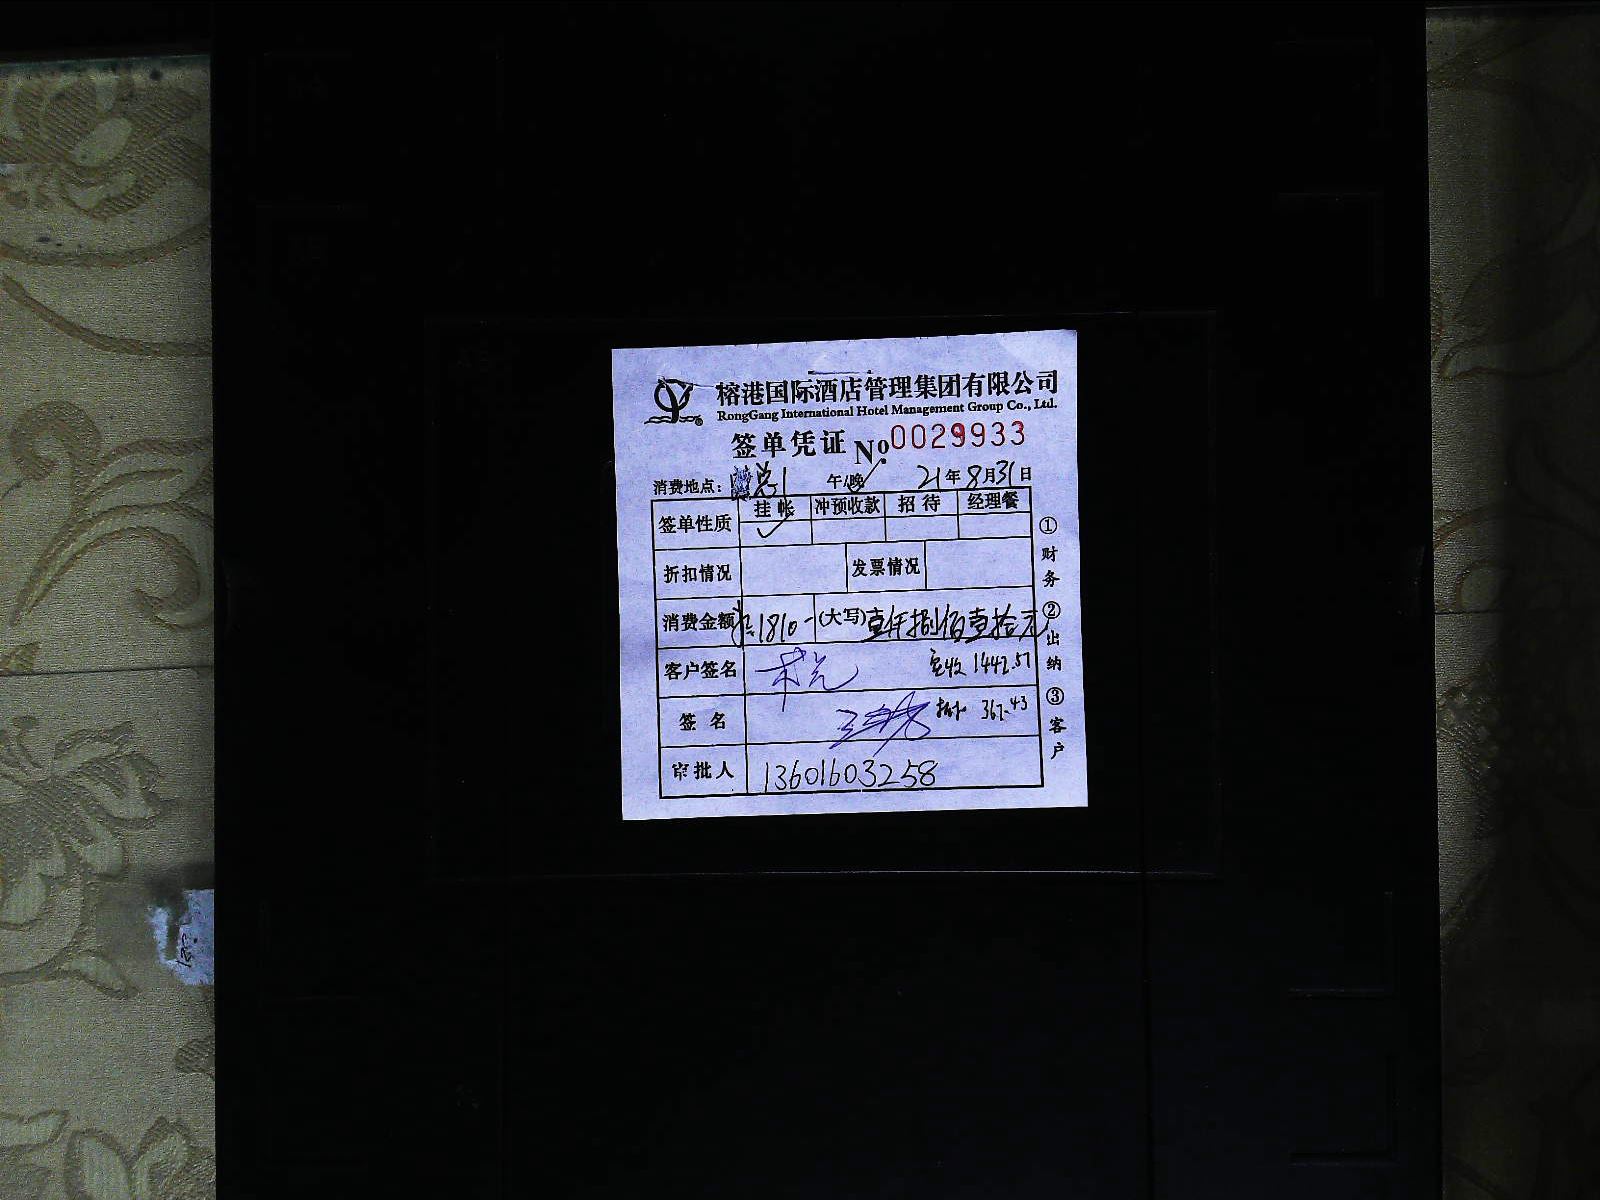 榕港国际酒店管理集团有限公司
RongGang International Hotel Management Group Co., Ltd.
签单凭证 No 0029933
消费地点: 总1 午/晚✓ 21年8月31日
签单性质 挂帐 冲预收款 招待 经理餐
✓
折扣情况 发票情况
消费金额 1810- (大写)壹仟捌佰壹拾元
客户签名 实收 1442.57
签名 367.43
审批人 13601603258
①财务 ②出纳 ③客户